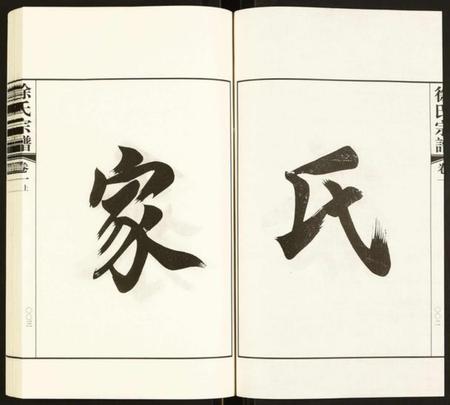 氏
家
徐氏宗譜
卷一上
〇〇三
徐氏宗譜
卷一